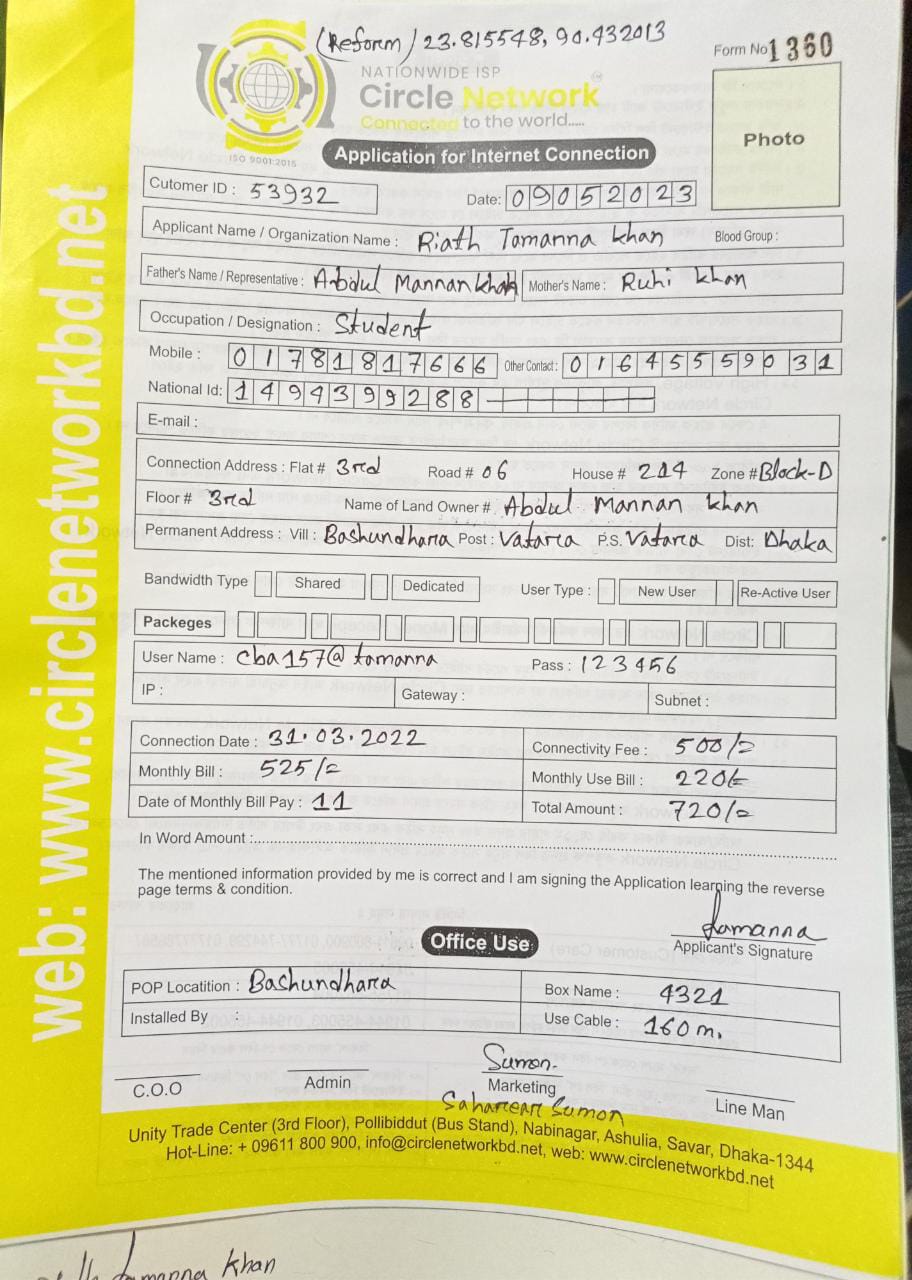 (Reform) 23.815548, 90.432013
Form No 1360
NATIONWIDE ISP
Circle Network
Connected to the world.....
ISO 9001:2015
Photo
Application for Internet Connection
Cutomer ID : 53932
Date: 09052023
Applicant Name / Organization Name : Riath Tamanna khan Blood Group :
Father's Name / Representative : Abdul Mannan khan Mother's Name : Ruhi khan
Occupation / Designation : Student
Mobile : 01781817666 Other Contact : 01645559031
National Id: 1494399288
E-mail :
Connection Address : Flat # 3rd Road # 06 House # 214 Zone # Block-D
Floor # 3rd Name of Land Owner # Abdul Mannan khan
Permanent Address : Vill : Bashundhara Post : Vatara P.S. Vatara Dist: Dhaka
Bandwidth Type Shared Dedicated User Type : New User Re-Active User
Packeges
User Name : cba157@tamanna Pass : 123456
IP : Gateway : Subnet :
Connection Date : 31.03.2022 Connectivity Fee : 500/=
Monthly Bill : 525/= Monthly Use Bill : 220/=
Date of Monthly Bill Pay : 11 Total Amount : 720/=
In Word Amount :
The mentioned information provided by me is correct and I am signing the Application learning the reverse
page terms & condition.
Tamanna
Applicant's Signature
Office Use
POP Locatition : Bashundhara Box Name : 4321
Installed By : Use Cable : 160 m.
Sumon.
C.O.O Admin Marketing Line Man
Saharear Sumon
Unity Trade Center (3rd Floor), Pollibiddut (Bus Stand), Nabinagar, Ashulia, Savar, Dhaka-1344
Hot-Line: + 09611 800 900, info@circlenetworkbd.net, web: www.circlenetworkbd.net
web: www.circlenetworkbd.net
tamanna khan